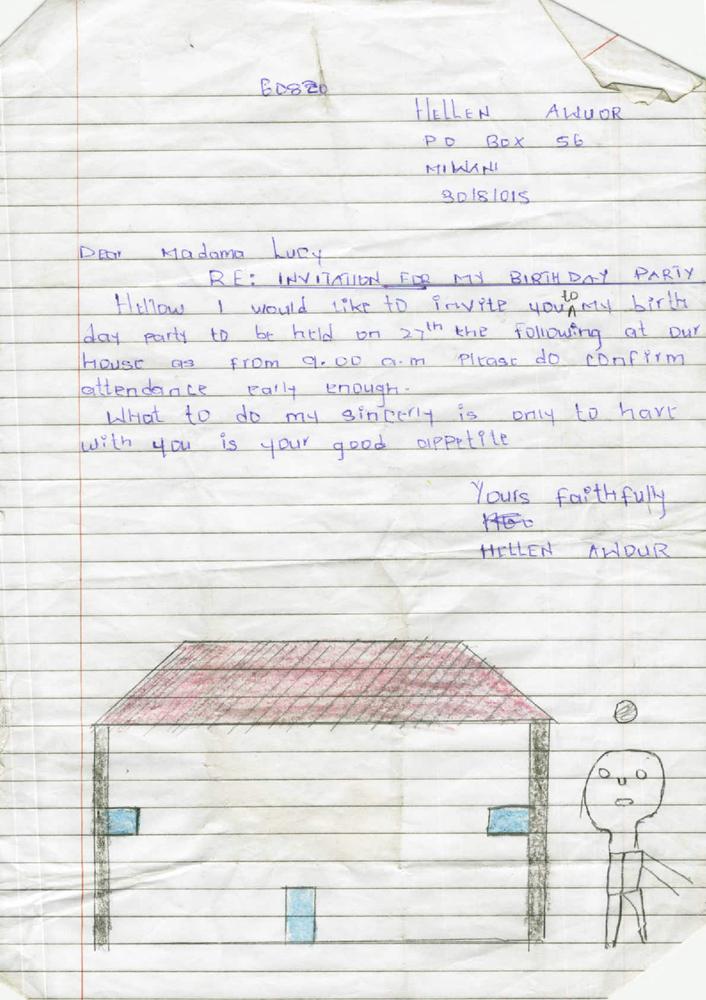 HELLEN AWUOR
PO BOX 56
MIWANI
30/8/015
Dear Madama Lucy
RE: INVITATION FOR MY BIRTHDAY PARTY
Hellow I would like to invite you to my birth
day party to be held on 27th the following at our
House as from 9.00 a.m Please do confirm
attendance early enough.
What to do my sincerly is only to have
with you is your good appetite
Yours faithfully
HELLEN AWOUR